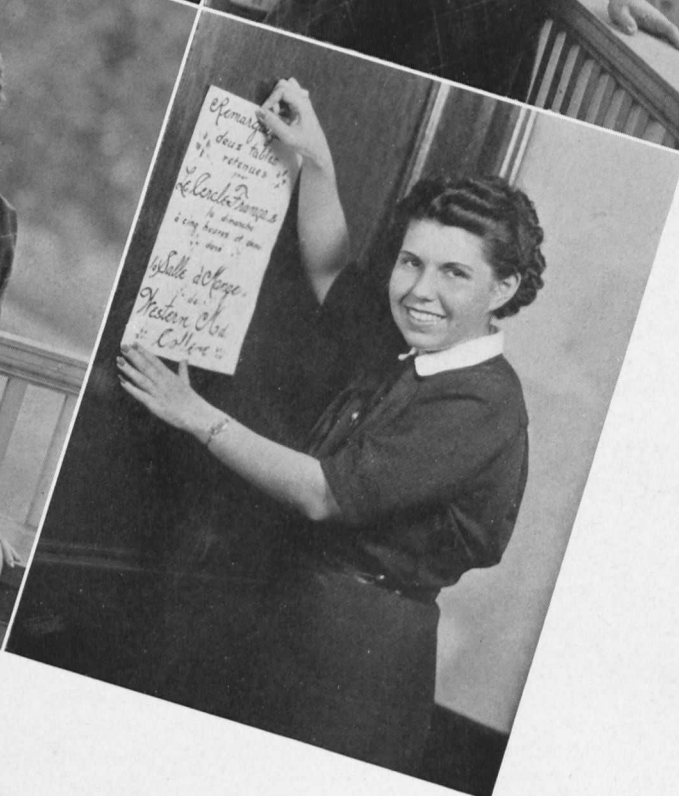 Remarquez
deux tables
retenues
pour
Le Cercle Français
le dimanche
à cinq heures et demi
dans
la Salle à Manger
de
Western Md.
College